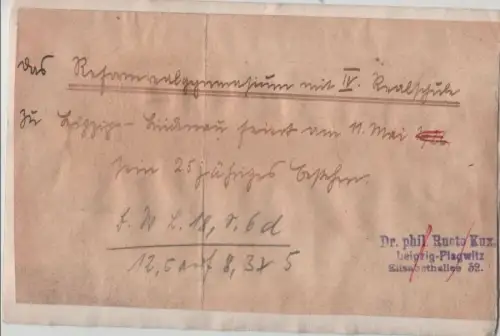 das Reformrealgymnasium mit IV. Realschule
zu Leipzig-Lindenau feiert am 11. Mai
sein 25jähriges Bestehen.
12,5 auf 8,3 x 5
Dr. phil.
Leipzig-Plagwitz
Elisabethallee 32.